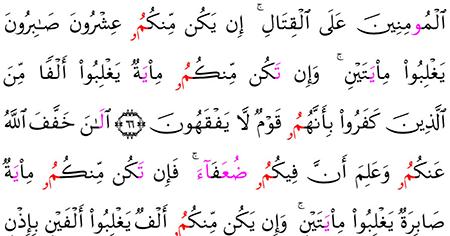 اَ۬لْمُومِنِينَ عَلَى اَ۬لْقِتَالِۖ إِن يَكُن مِّنكُمُۥ عِشْرُونَ صَٰبِرُونَ
يَغْلِبُوا۟ مِاْيَتَيْنِۖ وَإِن تَكُن مِّنكُمُۥ مِاْيَةٌ يَغْلِبُوا۟ أَلْفًا مِّنَ
اَ۬لذِينَ كَفَرُوا۟ بِأَنَّهُمُۥ قَوْمٌ لَّا يَفْقَهُونَ ٦٦ اَ۬لَٰنَ خَفَّفَ اَ۬للَّهُ
عَنكُمُۥ وَعَلِمَ أَنَّ فِيكُمُۥ ضُعَفَآءَۖ فَإِن تَكُن مِّنكُمُۥ مِاْيَةٌ
صَابِرَةٌ يَغْلِبُوا۟ مِاْيَتَيْنِۖ وَإِن يَكُن مِّنكُمُۥ أَلْفٌ يَغْلِبُوا۟ أَلْفَيْنِ بِإِذْنِ